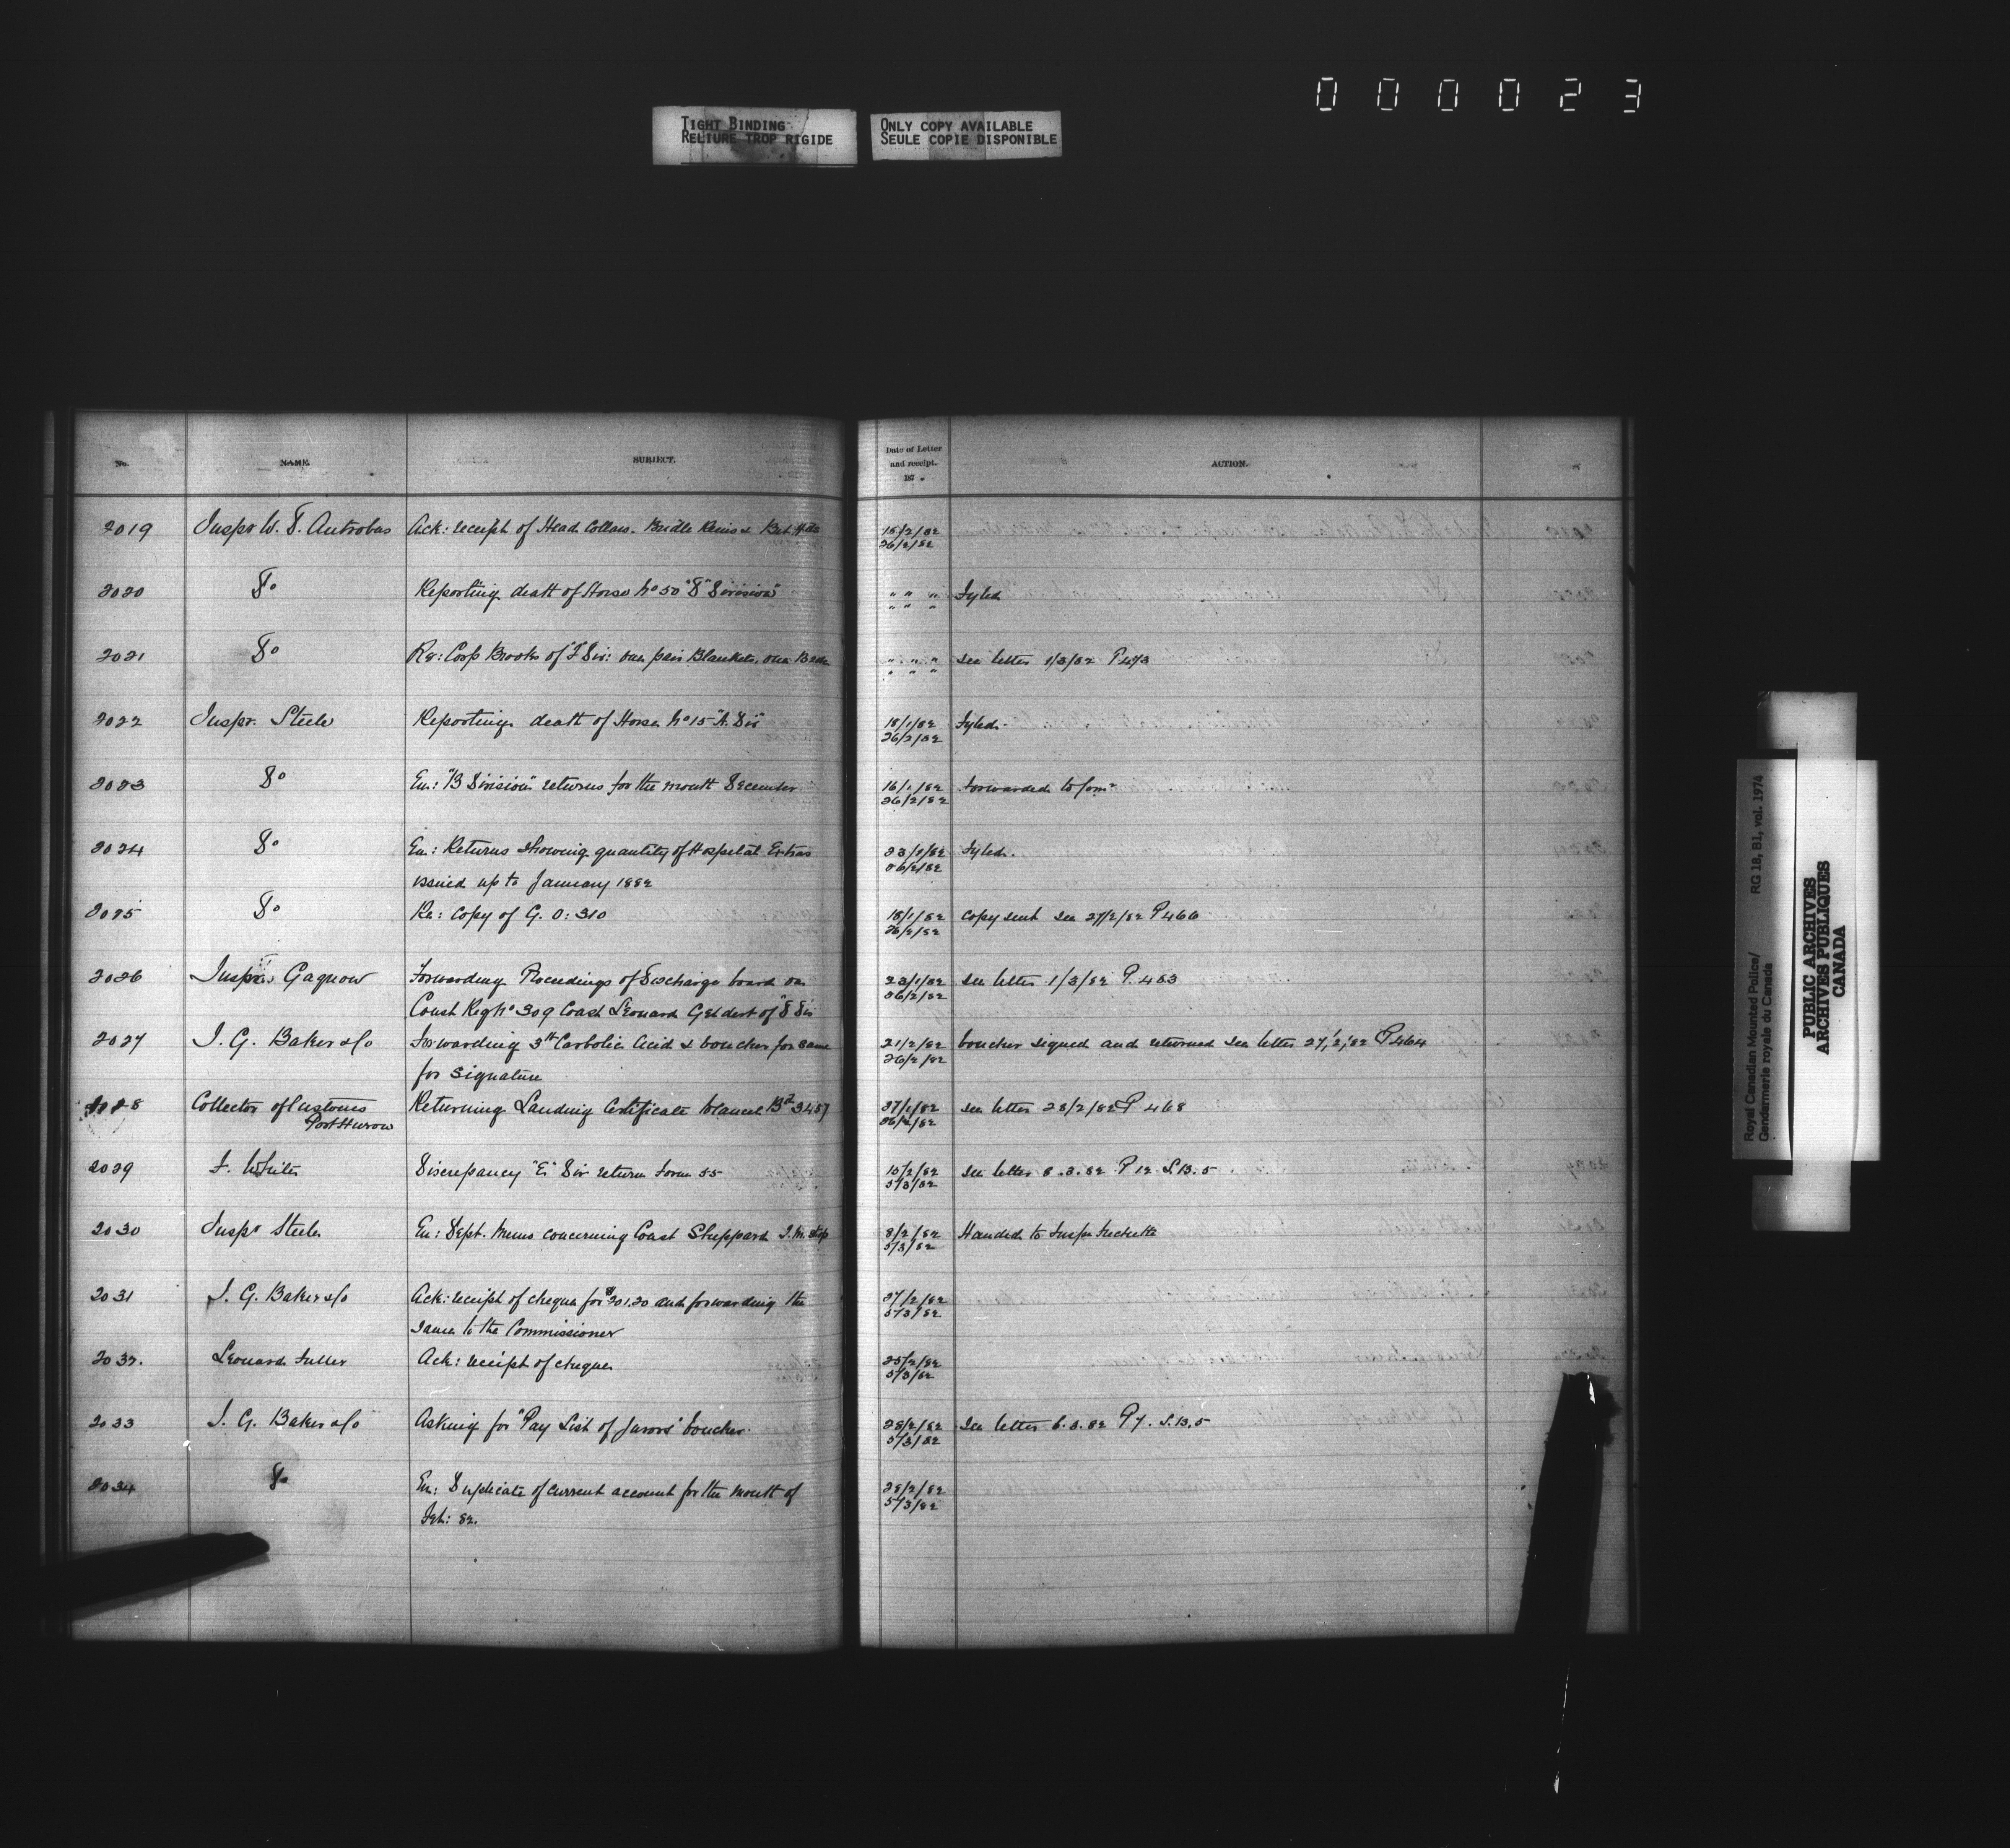 000023
TIGHT BINDING
RELIURE TROP RIGIDE
ONLY COPY AVAILABLE
SEULE COPIE DISPONIBLE
No. NAME. SUBJECT. Date of Letter and receipt. 187 . ACTION.
2019 Inspr W. D. Antrobus Ack: receipt of Head Collars. Bridle Reins & 15/2/82
26/2/82
2020 Do Reporting death of Horse No 50 "D" Division" " " " Fyled
" " "
2021 Do Rq: Corp Brooks of "F" Div: one pair Blankets, one " " " See letter 1/3/82 P 473
" " "
2022 Inspr. Steele Reporting death of Horse No 15 "A. Div" 18/1/82 Fyled.
26/2/82
2023 Do En: "B Division" returns for the month December 16/1/82 Forwarded to Comr
26/2/82
2024 Do En: Returns showing quantity of Hospital Extras 23/1/82 Fyled.
issued up to January 1882 26/2/82
2025 Do Re: Copy of G. O: 310 18/1/82 Copy sent See 27/2/82 P 466
26/2/82
2026 Inspr Gagnon Forwarding Proceedings of Discharge board on 23/1/82 See letter 1/3/82 P. 483
Const Reg No 309 Const Leonard of "D" Div 26/2/82
2027 I. G. Baker & Co Forwarding Carbolic Acid & voucher for same 21/2/82 Voucher signed and returned See letter 27/2/82 P 464
for signature 26/2/82
2028 Collector of Customs Returning Landing Certificate to cancel Bd 3457 27/1/82 See letter 28/2/82 P 468
Port Huron 26/2/82
2029 F. White Discrepancy "E" Div return Form 55 10/2/82 See letter 8.3.82 P 12 L.B. 5
5/3/82
2030 Inspr Steele En: Dept. Memo concerning Const Sheppard 8/2/82 Handed to Inspr
5/3/82
2031 I. G. Baker & Co Ack: receipt of cheque for $201.20 and forwarding the 27/2/82
same to the Commissioner 5/3/82
2032. Leonard Fuller Ack: receipt of cheque 25/2/82
5/3/82
2033 I. G. Baker & Co Asking for "Pay List of Jurors" voucher. 28/2/82 See letter 6.3.82 P 7. L.B. 5
5/3/82
2034 Do En: Duplicate of current account for the month of 28/2/82
Feb: 82. 5/3/82
Royal Canadian Mounted Police/ RG 18, B1, vol. 1974
Gendarmerie royale du Canada
PUBLIC ARCHIVES
ARCHIVES PUBLIQUES
CANADA